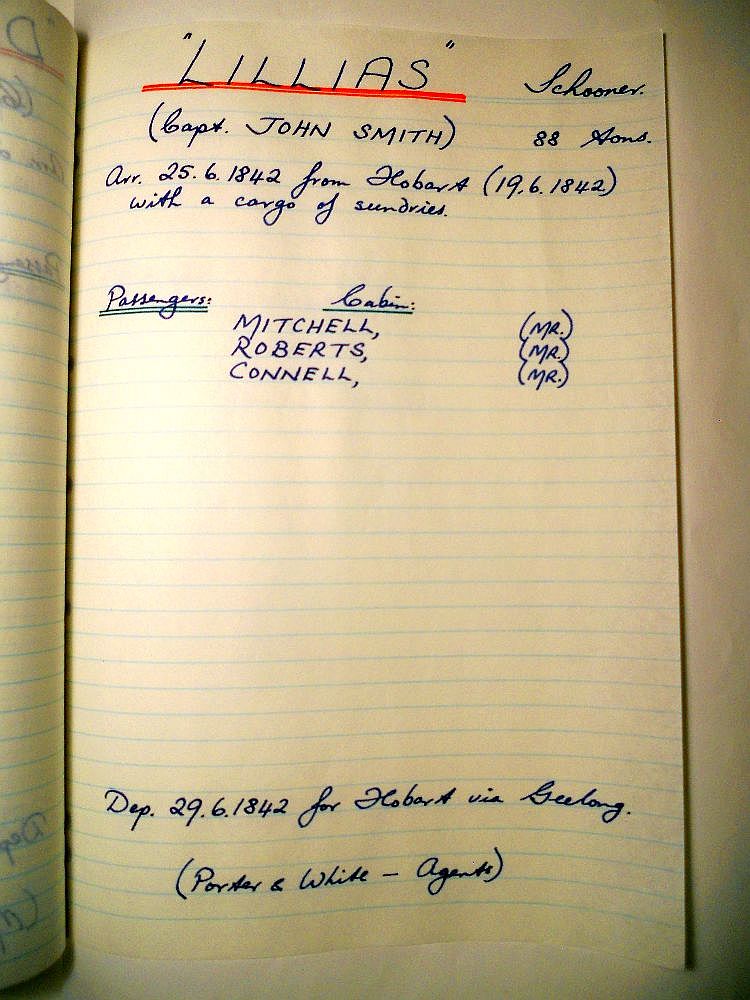 "LILLIAS" Schooner.
(Capt. JOHN SMITH) 88 tons.
Arr. 25.6.1842 from Hobart (19.6.1842)
with a cargo of sundries.
Passengers: Cabin:
MITCHELL, (MR.)
ROBERTS, (MR.)
CONNELL, (MR.)
Dep. 29.6.1842 for Hobart via Geelong.
(Porter & White - Agents)